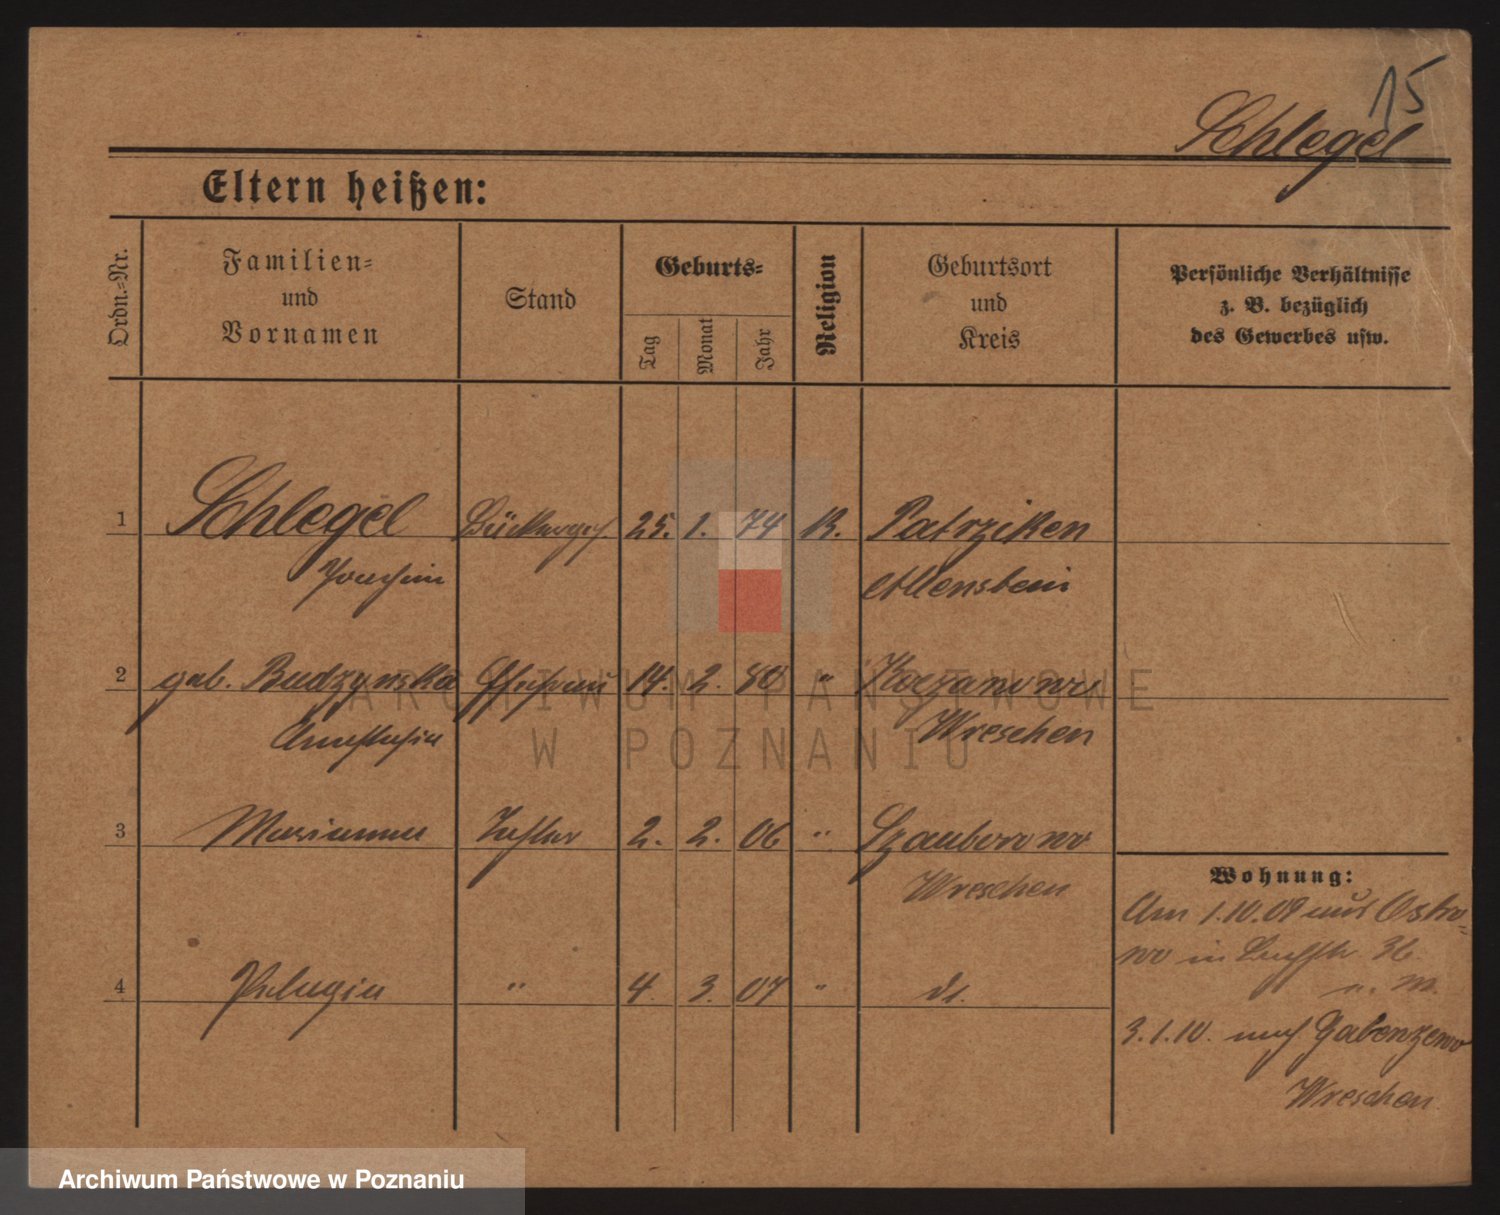 15
Schlegel
Eltern heißen:
Ordn.=Nr.
Familien=
und
Vornamen
Stand
Geburts=
Tag
Monat
Jahr
Religion
Geburtsort
und
Kreis
Persönliche Verhältnisse
z. B. bezüglich
des Gewerbes usw.
1 Schlegel 25. 1. 74 K. Patrziken
Joachim Allenstein
2 geb. Budzynska Ehefrau 14. 2. 80 "
Anastasia Wreschen
3 Marianna Tochter 2. 2. 06 "
Wreschen
4 Pelagia " 4 3. 07 " do.
Wohnung:
Am 1.10.09 aus Ostro=
wo in 36.
3.1.10. nach
Wreschen
ARCHIWUM PAŃSTWOWE
W POZNANIU
Archiwum Państwowe w Poznaniu